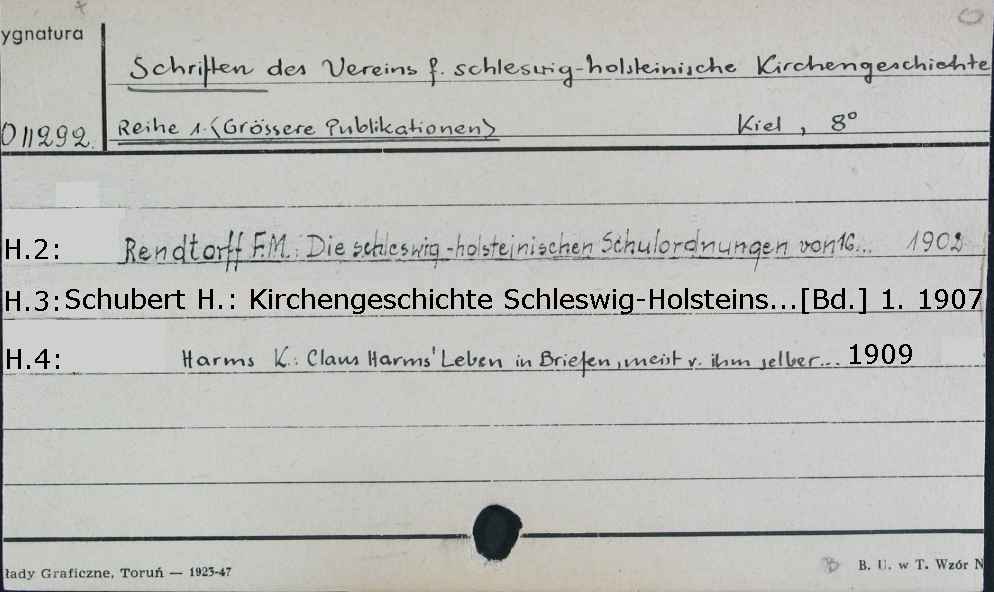 ygnatura
Schriften des Vereins f. schleswig-holsteinische Kirchengeschichte
011292. Reihe 1. <Grössere Publikationen> Kiel, 8°
H.2: Rendtorff F.M.: Die schleswig-holsteinischen Schulordnungen von 16... 1902
H.3: Schubert H.: Kirchengeschichte Schleswig-Holsteins...[Bd.] 1. 1907
H.4: Harms K.: Claus Harms' Leben in Briefen, meist v. ihm selber... 1909
łady Graficzne, Toruń — 1925-47 B. U. w T. Wzór N